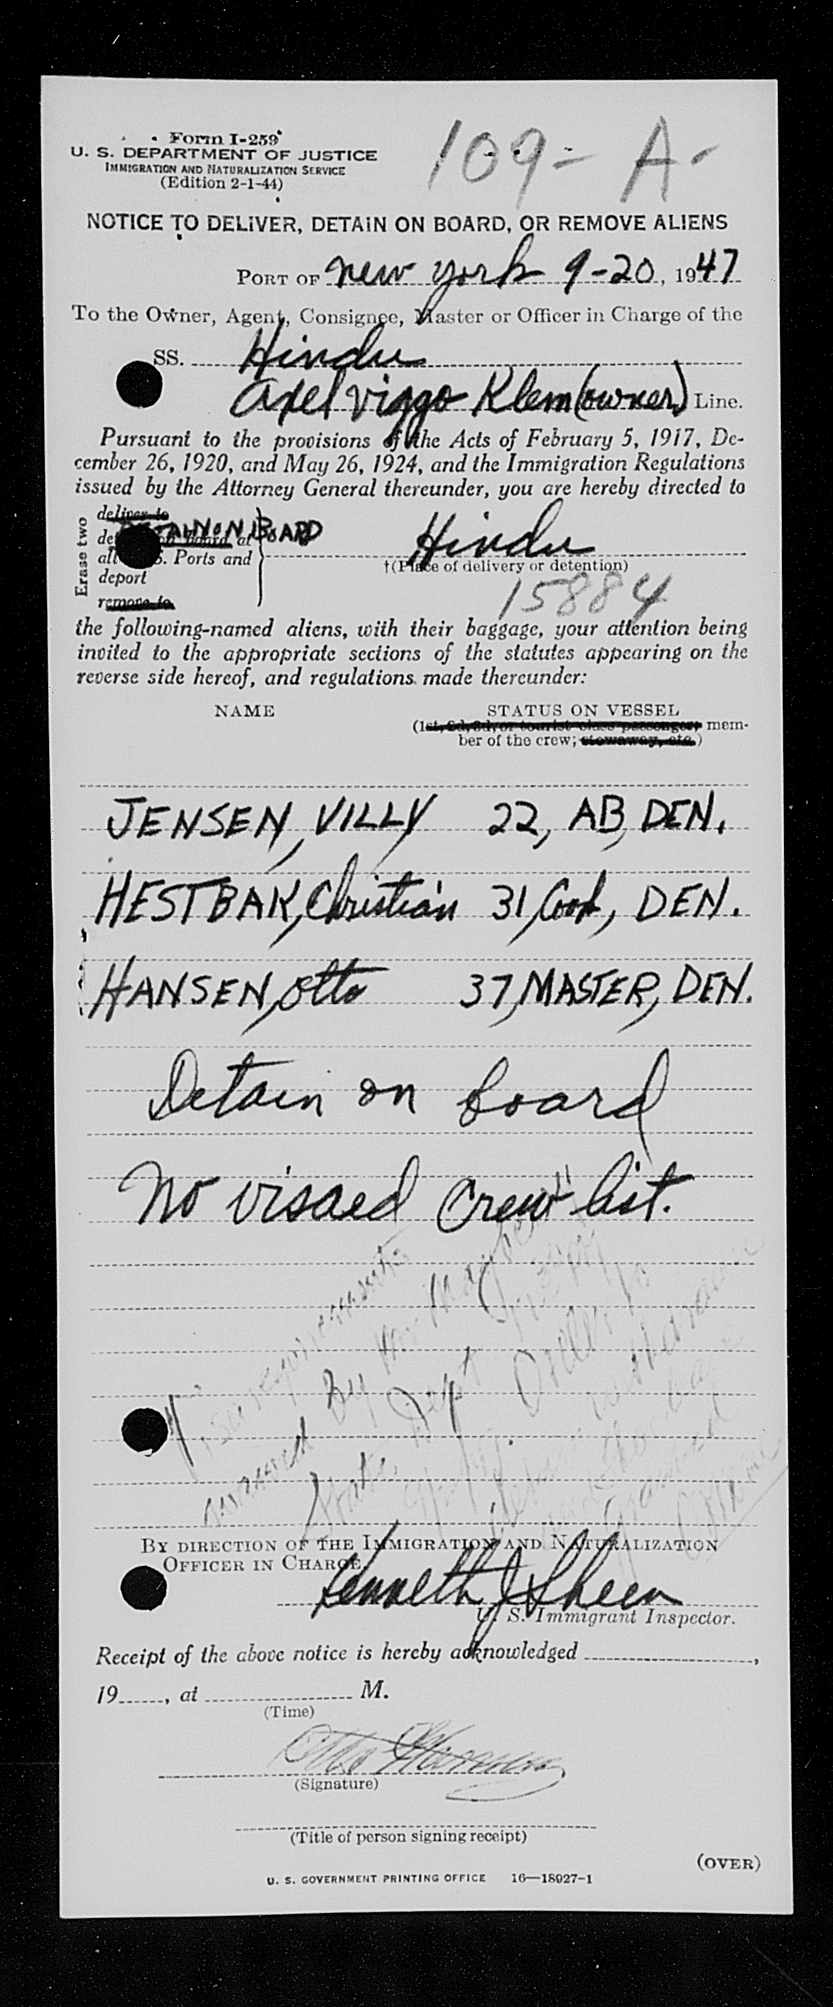 Form I-259
109-A-
U. S. DEPARTMENT OF JUSTICE
IMMIGRATION AND NATURALIZATION SERVICE
(Edition 2-1-44)
NOTICE TO DELIVER, DETAIN ON BOARD, OR REMOVE ALIENS
PORT OF New York 9-20, 1947
To the Owner, Agent, Consignee, Master or Officer in Charge of the
SS. Hindu
Axel Viggo Klem (owner) Line.
Pursuant to the provisions of the Acts of February 5, 1917, De-
cember 26, 1920, and May 26, 1924, and the Immigration Regulations
issued by the Attorney General thereunder, you are hereby directed to
Erase two
deliver to
DETAIN ON BOARD
on board at
Ports and
deport
remove to
Hindu
†(Place of delivery or detention)
15884
the following-named aliens, with their baggage, your attention being
invited to the appropriate sections of the statutes appearing on the
reverse side hereof, and regulations made thereunder:
NAME STATUS ON VESSEL
(1st, 2d, 3d, or tourist class passenger; mem-
ber of the crew; stowaway, etc.)
JENSEN, VILLY 22, AB, DEN.
HESTBAK, Christian 31, Cook, DEN.
HANSEN, Otto 37, MASTER, DEN.
Detain on board
No visaed crew list.
requirements
by
State Dept
BY DIRECTION OF THE IMMIGRATION AND NATURALIZATION
OFFICER IN CHARGE
Kenneth J Sheen
U. S. Immigrant Inspector.
Receipt of the above notice is hereby acknowledged ,
19 , at M.
(Time)
Otto Hansen
(Signature)
(Title of person signing receipt)
(OVER)
U. S. GOVERNMENT PRINTING OFFICE 16—18927-1